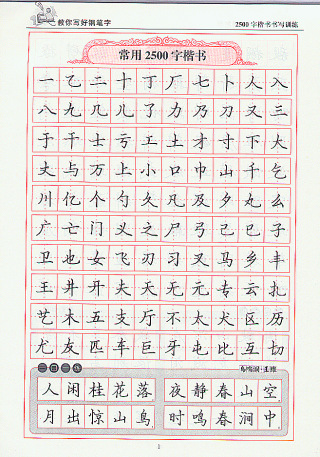 教你写好钢笔字
2500字楷书书写训练
常用2500字楷书
一乙二十丁厂七卜人入
八九几儿了力乃刀又三
于干士亏工土才寸下大
丈与万上小口巾山千乞
川亿个勺久凡及夕丸么
广亡门义之尸弓己已子
卫也女飞刃习叉马乡丰
王井开夫天无元专云扎
艺木五支厅不太犬区历
尤友匹车巨牙屯比互切
人闲桂花落 夜静春山空
月出惊山鸟 时鸣春涧中
1